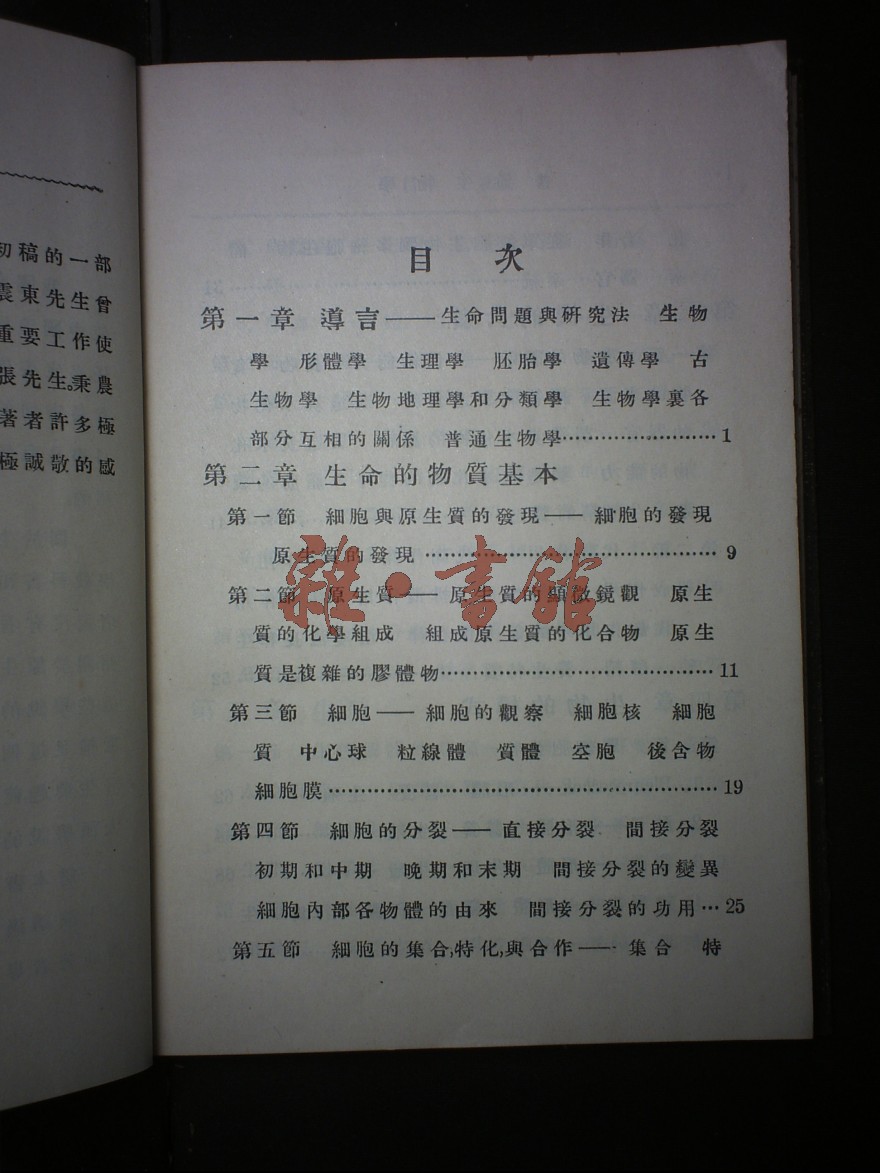 初稿的一部
震東先生曾
重要工作使
張先生。秉農
著者許多極
極誠敬的感
目次
第一章 導言——生命問題與研究法 生物
學 形體學 生理學 胚胎學 遺傳學 古
生物學 生物地理學和分類學 生物學裏各
部分互相的關係 普通生物學……………………1
第二章 生命的物質基本
第一節 細胞與原生質的發現—— 細胞的發現
原生質的發現……………………………………9
第二節 原生質—— 原生質的顯微鏡觀 原生
質的化學組成 組成原生質的化合物 原生
質是複雜的膠體物……………………………………11
第三節 細胞—— 細胞的觀察 細胞核 細胞
質 中心球 粒線體 質體 空胞 後含物
細胞膜……………………………………………………19
第四節 細胞的分裂—— 直接分裂 間接分裂
初期和中期 晚期和末期 間接分裂的變異
細胞內部各物體的由來 間接分裂的功用…25
第五節 細胞的集合,特化,與合作—— 集合 特
雜·書館